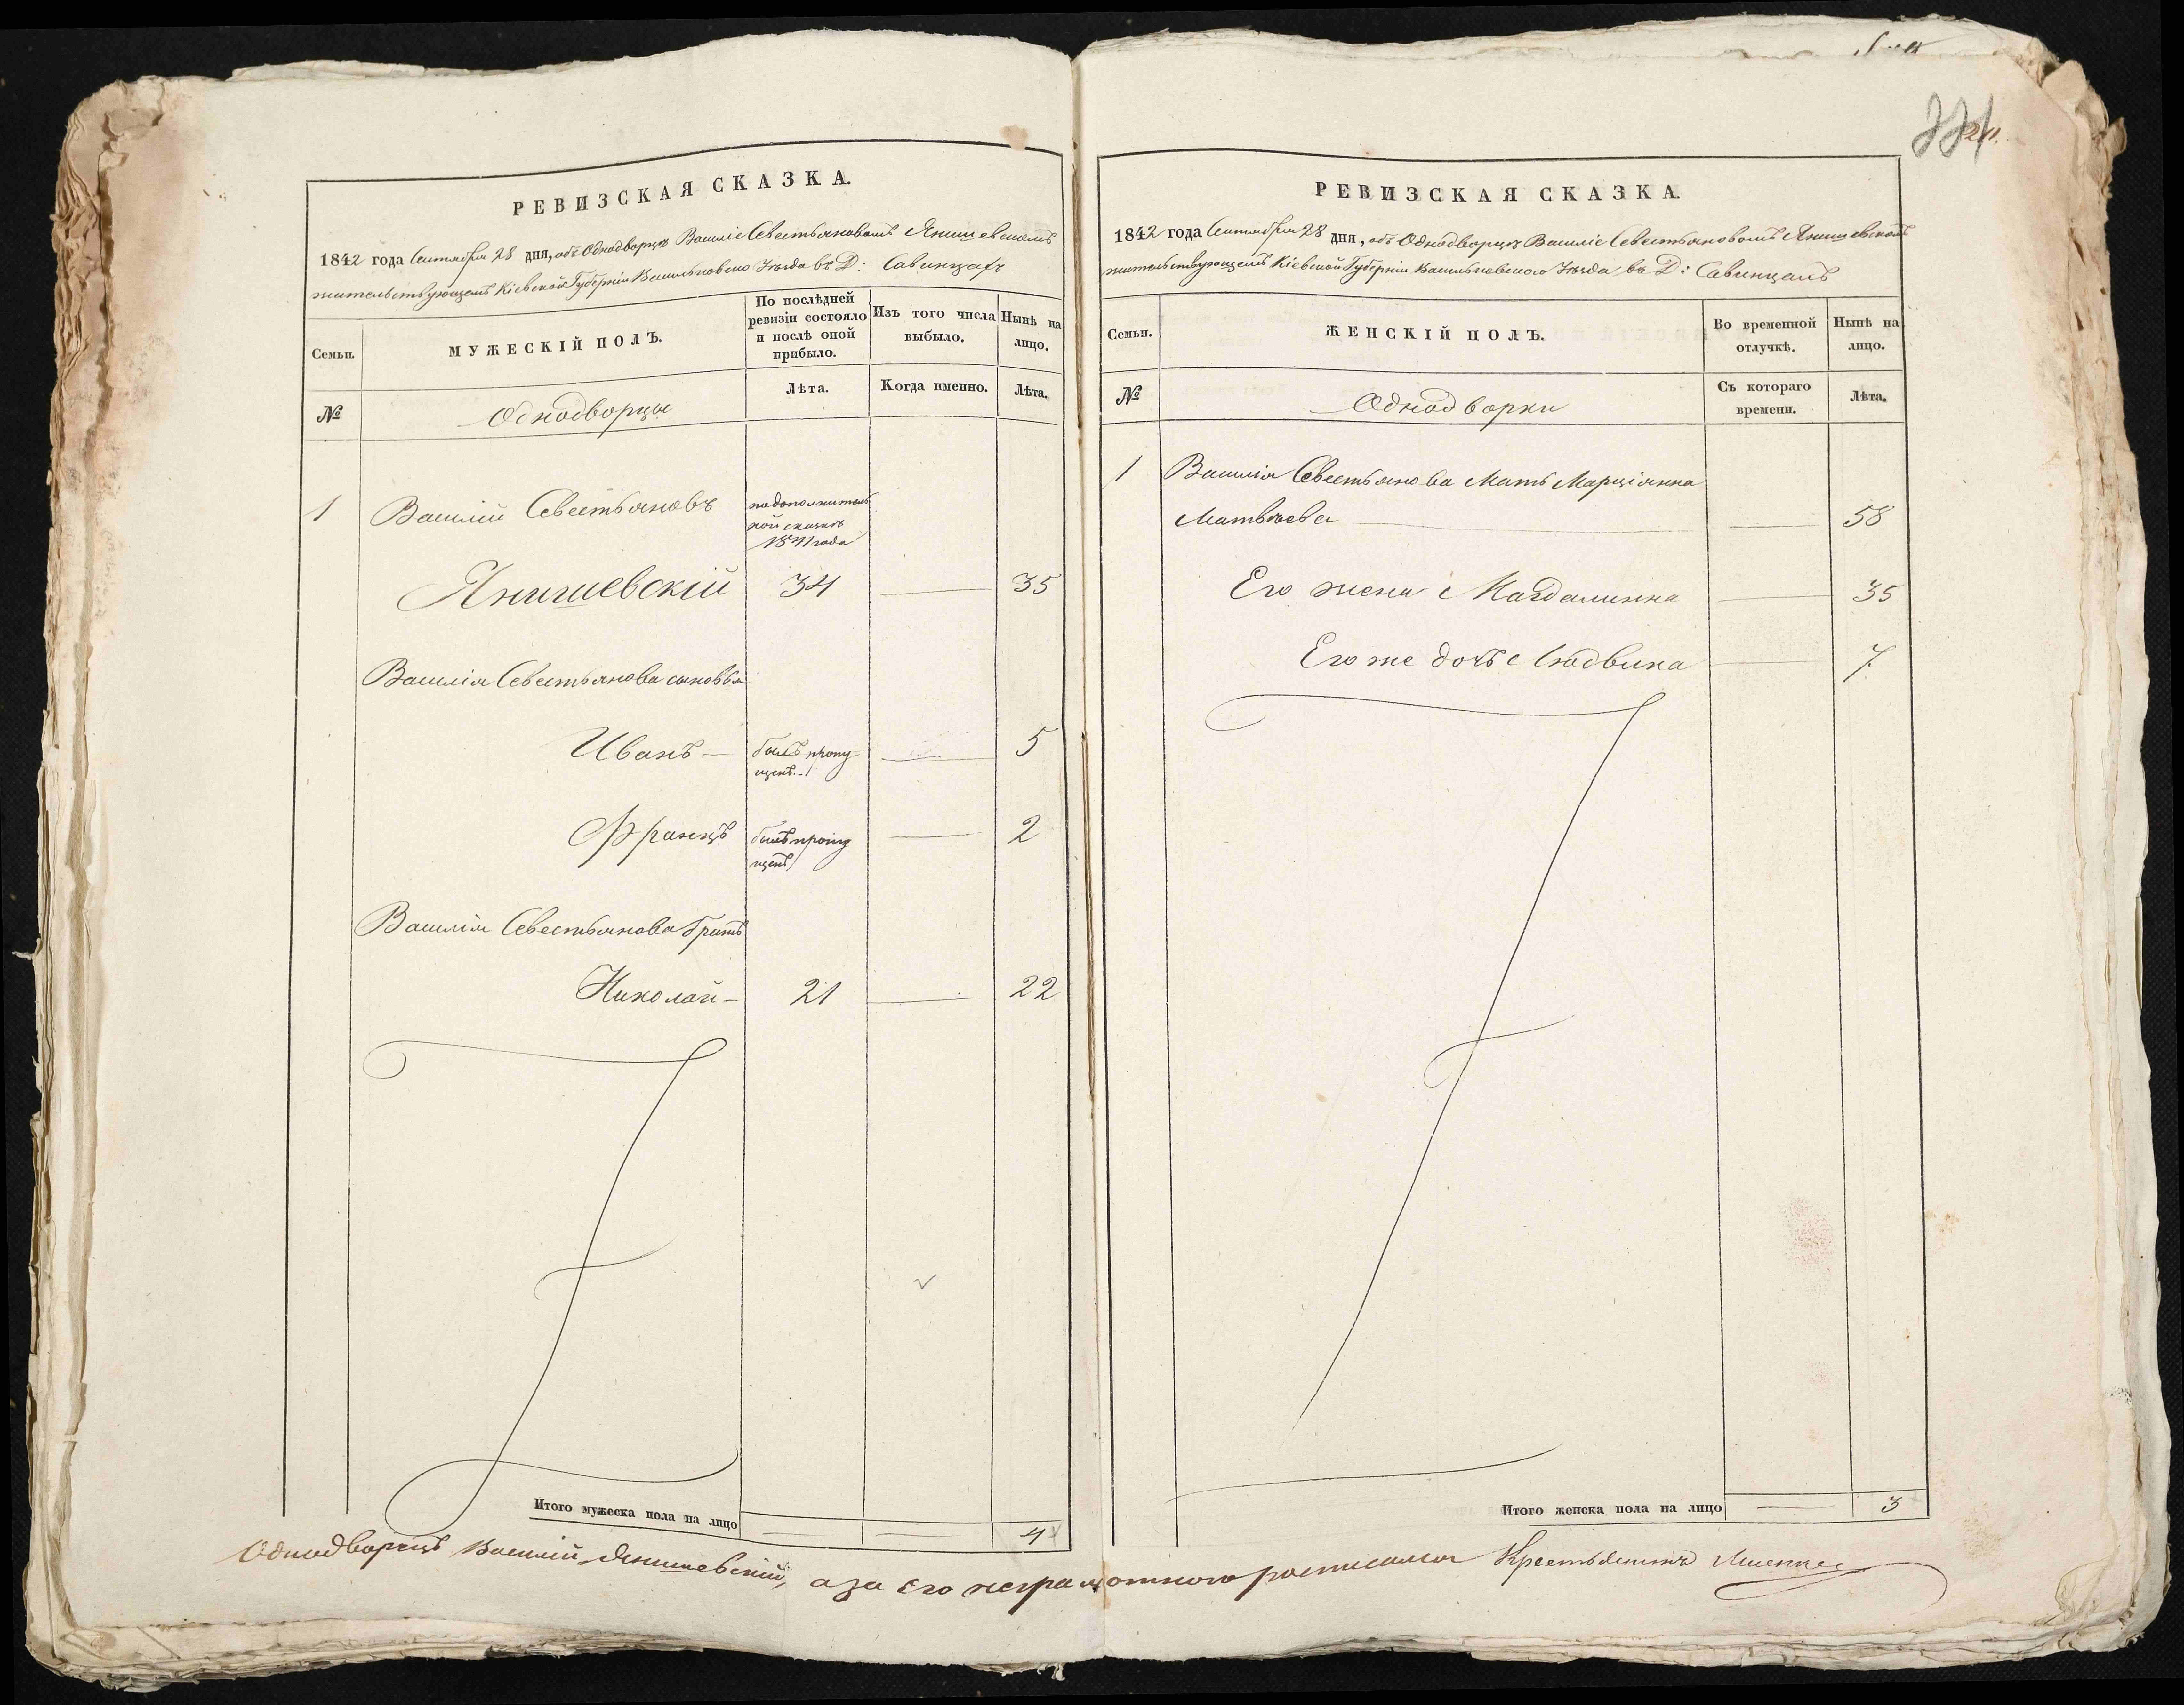 221
РЕВИЗСКАЯ СКАЗКА.
1842 года Сентября 28 дня, объ Однодворцѣ Василіе Севестьяновомъ Янишевскомъ
жительствующемъ Кіевской Губерніи Васильковского Уѣзда въ Д: Савинцахъ
Семьи.
МУЖЕСКІЙ ПОЛЪ.
По послѣдней
ревизіи состояло
и послѣ оной
прибыло.
Изъ того числа
выбыло.
Нынѣ на
лицо.
№
Однодворцы
Лѣта.
Когда именно.
Лѣта.
1
Василій Севестьяновъ
подополнитель
ной сказкѣ
1841 года
Янишевскій
34
35
Василія Севестьянова сыновья
Иванъ
былъ пропу
щенъ
5
Францъ
былъ пропу
щенъ
2
Василія Севестьянова братъ
Николай
21
22
Итого мужеска пола на лицо
4
РЕВИЗСКАЯ СКАЗКА.
1842 года Сентября 28 дня, объ Однодворцѣ Василіе Севестьяновомъ Янишевскомъ
жительствующемъ Кіевской Губерніи Васильковского Уѣзда въ Д: Савинцахъ
Семьи.
ЖЕНСКІЙ ПОЛЪ.
Во временной
отлучкѣ.
Нынѣ на
лицо.
№
Однодворки
Съ котораго
времени.
Лѣта.
1
Василія Севестьянова Мать Марціянна
Матвѣева
58
Его жена Магдалинна
35
Его же дочь Людвика
7
Итого женска пола на лицо
3
Однодворецъ Василий Янишевский, а за его неграмотного росписался Крестьянинъ